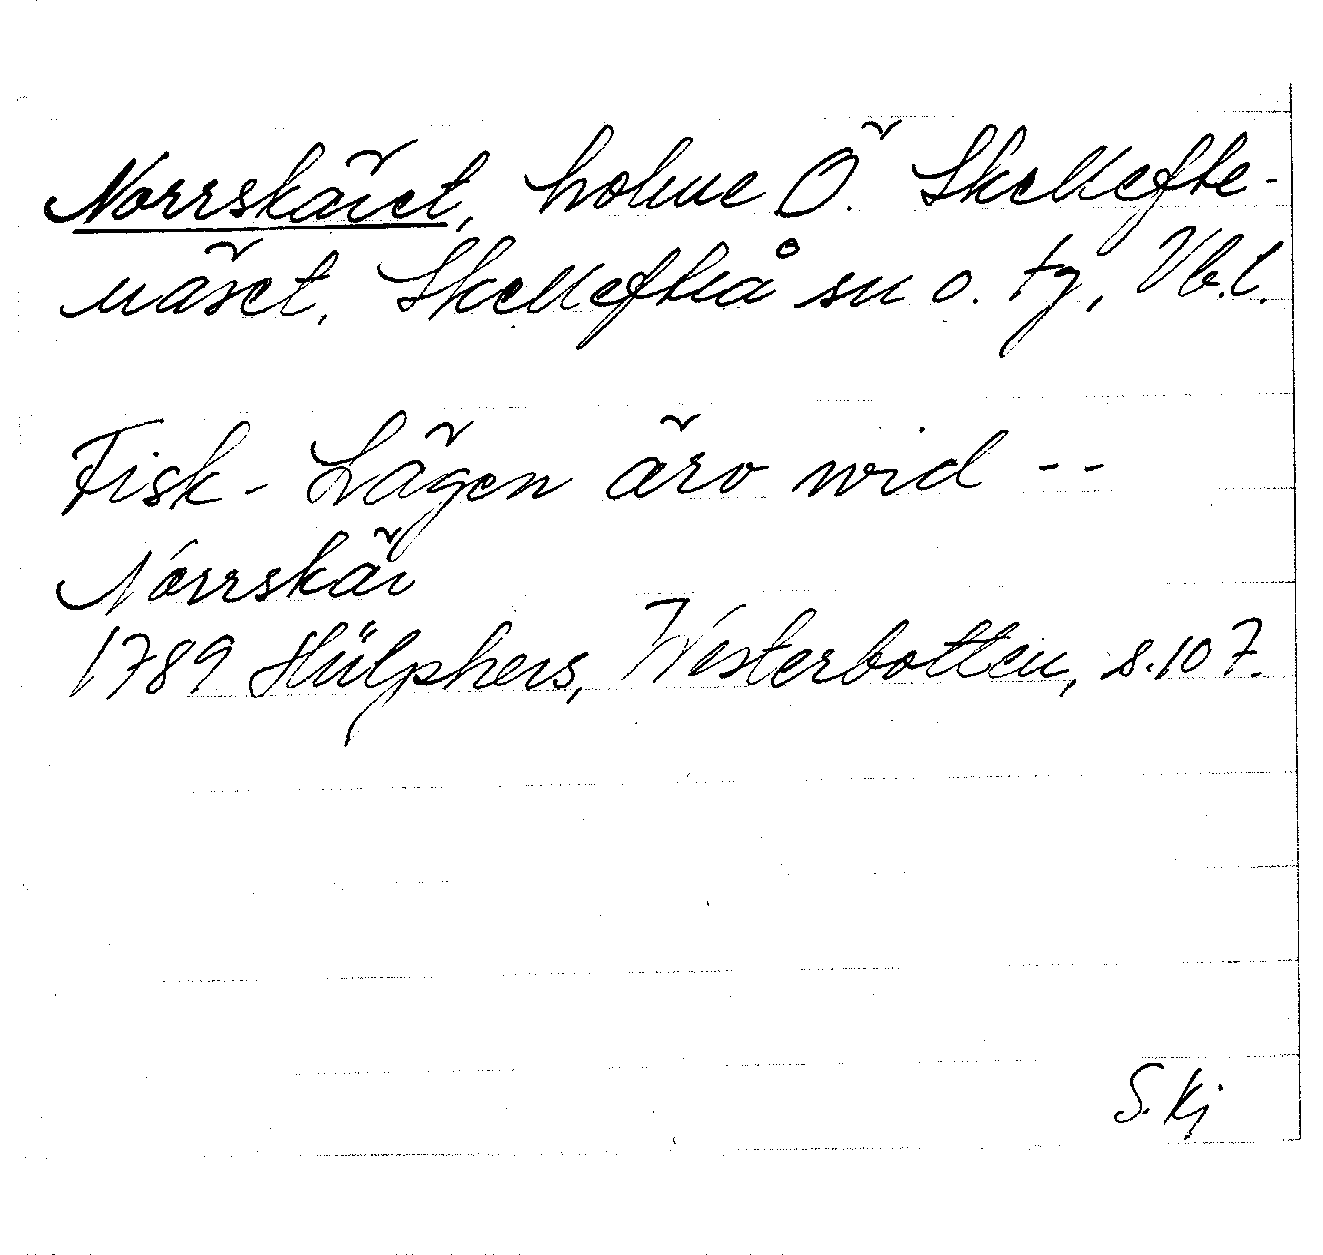 Norrskäret, holme Ö. Skellefte-
näset, Skellefteå sn o. tg, Vb.l.
Fisk-Lägen äro wid --
Norrskär
1789 Hülphers, Westerbotten, s.107.
S.Kj